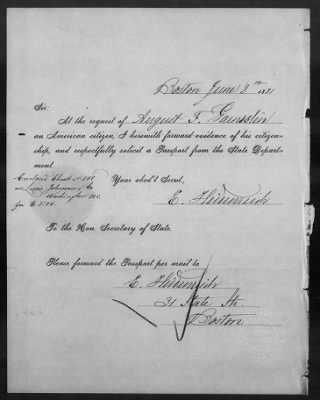 Boston June 8th 1871
Sir
At the request of August F. Gansslin
an American citizen, I herewith forward evidence of his citizen-
ship, and respectfully solicit a Passport from the State Depart-
ment.
Enclosed Check
on Johnson & Co
Washington D.C.
for $ 5.00
Your obed't Servt,
E. Heidenreich
To the Hon. Secretary of State.
Please forward the Passport per mail to
E. Heidenreich
31 State St.
Boston